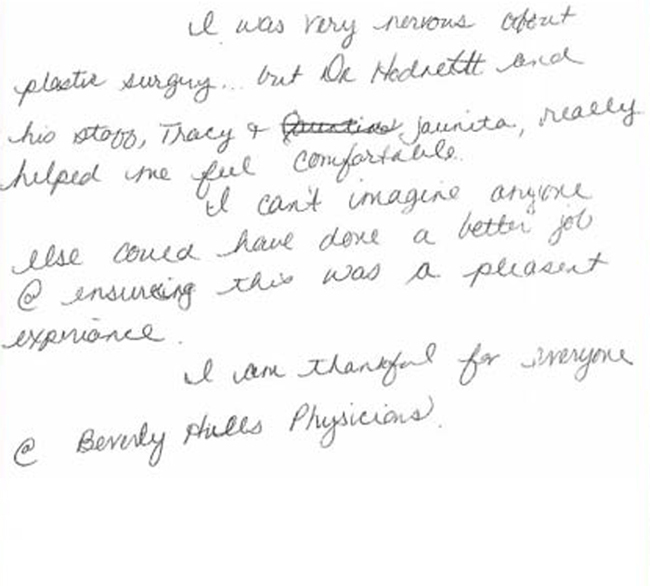 I was very nervous about
plastic surgery... but Dr Hodnett and
his staff, Tracy & Jaunita, really
helped me feel comfortable.
I can't imagine anyone
else could have done a better job
@ ensureing this was a pleasent
experiance.
I am thankful for everyone
@ Beverly Hills Physicians.